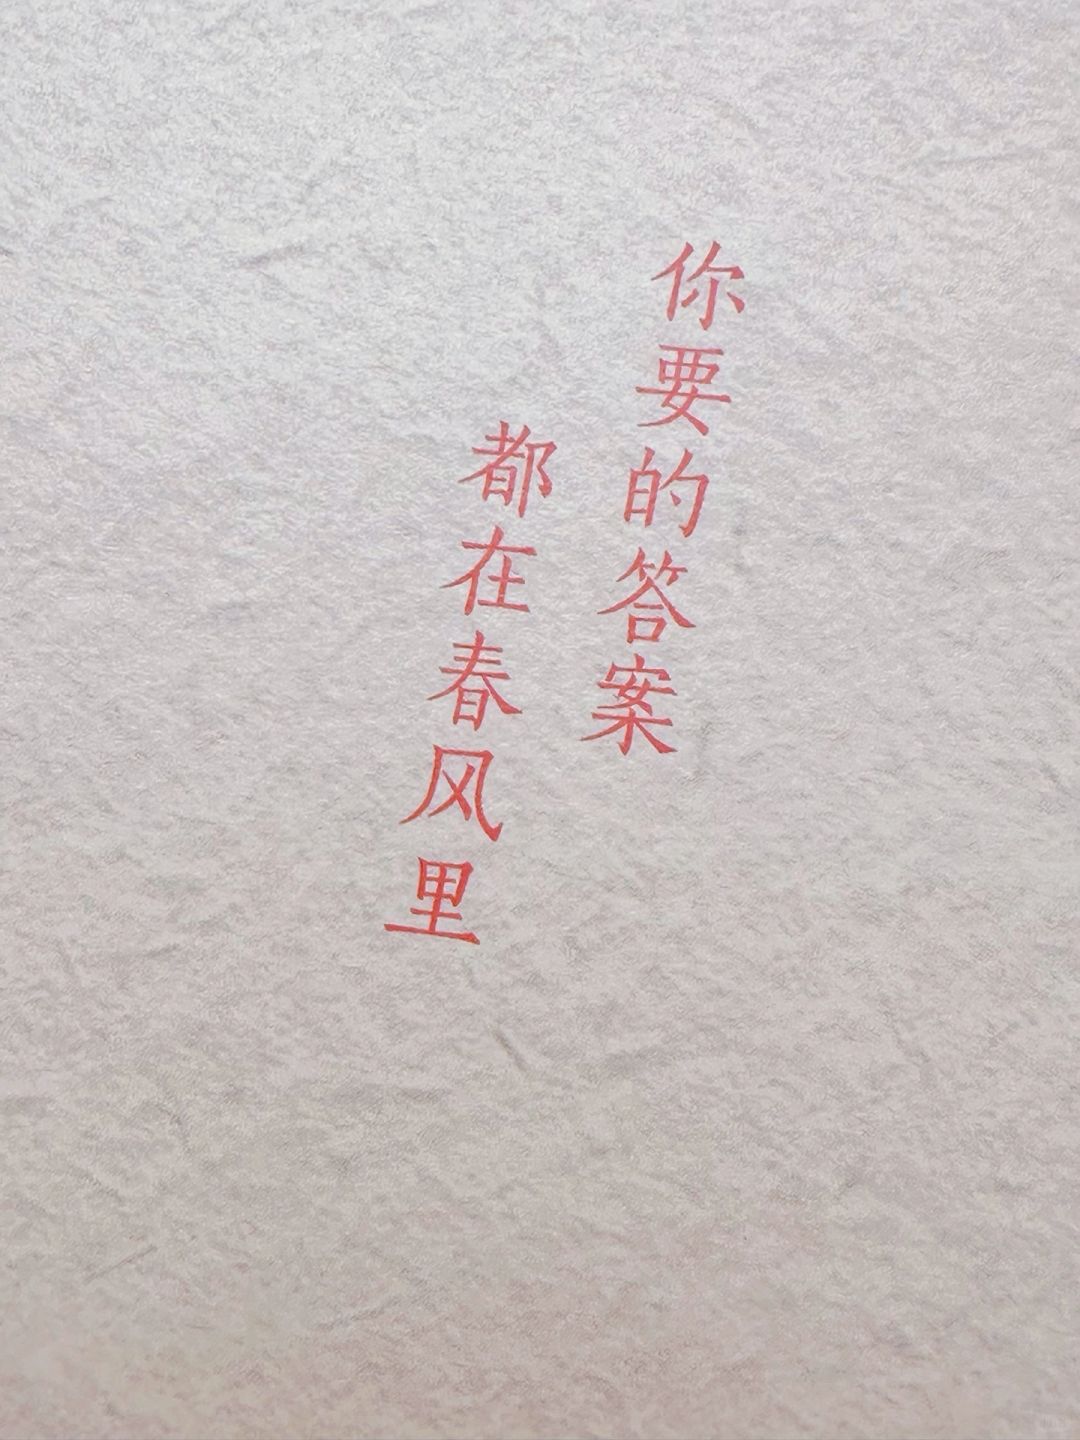 你要的答案
都在春风里